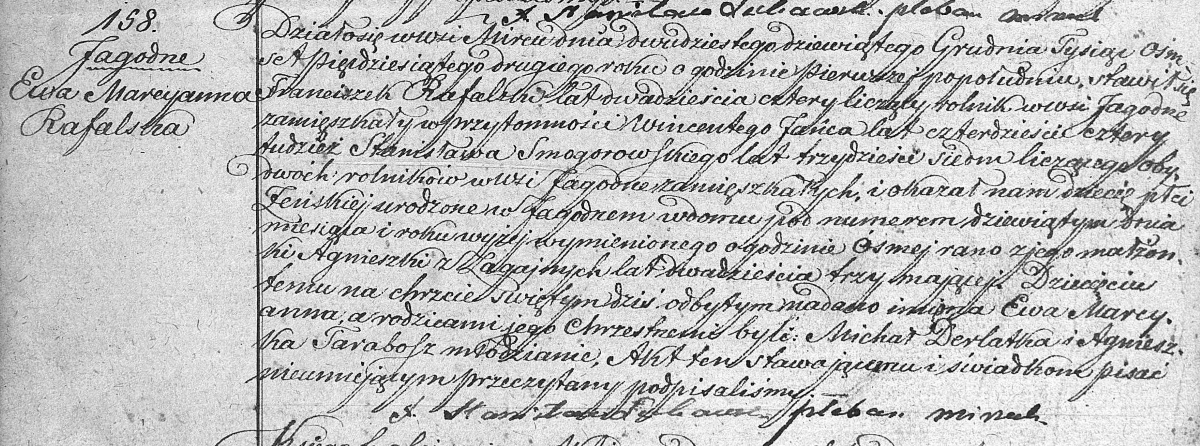 158.
Jagodne
Ewa Marcyanna
Rafalska
X. Stanisław pleban
Działo się w wsi Mircu dnia dwudziestego dziewiątego Grudnia Tysiąc Ośm-
set Pięćdziesiątego drugiego roku o godzinie Pierwszej po południu, stawił się
Franciszek Rafalski lat dwadzieścia cztery liczący rolnik w wsi Jagodne
zamięszkały w przytomności Wincentego Jańca lat czterdzieści cztery
tudzież Stanisława Smogorowskiego lat trzydzieści siedm liczącego oby-
dwóch rolników w wsi Jagodne zamięszkałych, i okazał nam dziecię płci
Żeńskiej urodzone w Jagodnem w domu pod numerem dziewiątym dnia
miesiąca i roku wyżej wymienionego o godzinie Ósmej rano z jego małżon-
ki Agnieszki z Zagajnych lat dwadzieścia trzy mającej. Dziecięciu
temu na chrzcie świętym dziś odbytym nadano imiona Ewa Marcy-
anna, a rodzicami jego Chrzestnemi byli: Michał Derlatka i Agniesz-
ka Tarabosz młodzianie, Akt ten stawającemu i świadkom pisać
nieumiejącym przeczytany podpisaliśmy
X. Stanisław pleban